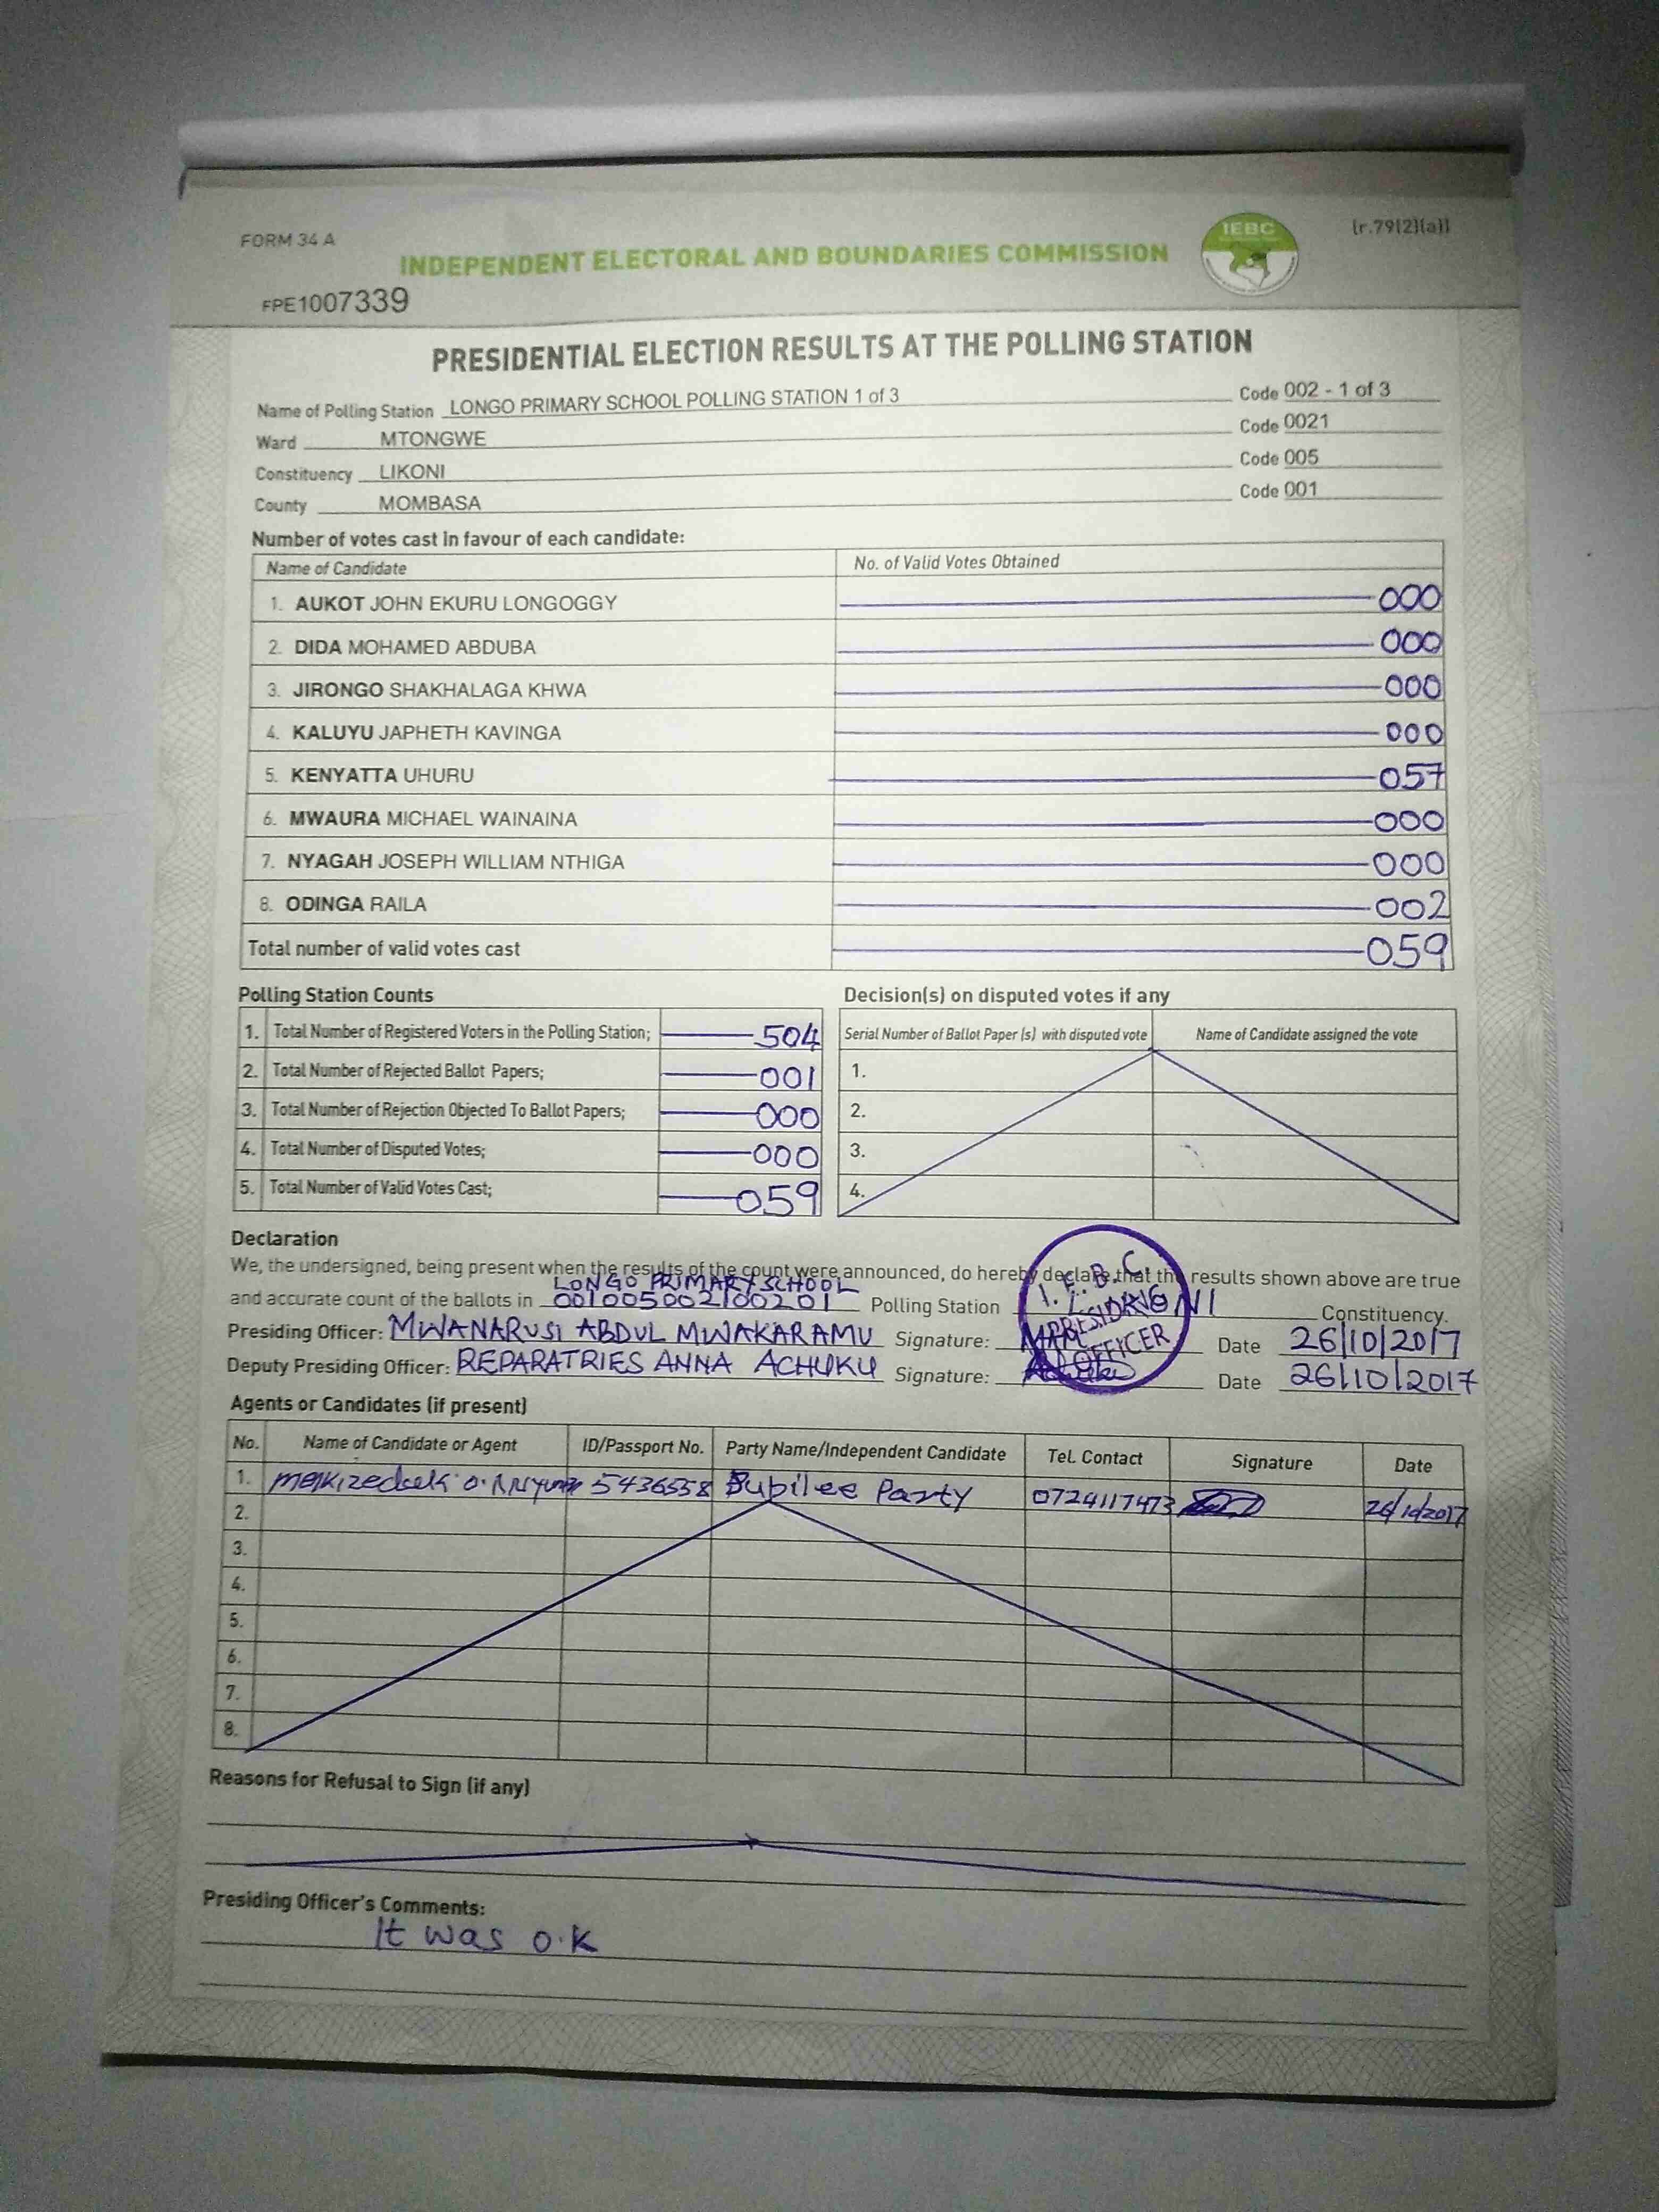 FORM 34 A
INDEPENDENT ELECTORAL AND BOUNDARIES COMMISSION
IEBC
(r.79(2)(a))
FPE1007339
PRESIDENTIAL ELECTION RESULTS AT THE POLLING STATION
Name of Polling Station LONGO PRIMARY SCHOOL POLLING STATION 1 of 3 Code 002 - 1 of 3
Ward MTONGWE Code 0021
Constituency LIKONI Code 005
County MOMBASA Code 001
Number of votes cast in favour of each candidate:
Name of Candidate No. of Valid Votes Obtained
1. AUKOT JOHN EKURU LONGOGGY 000
2. DIDA MOHAMED ABDUBA 000
3. JIRONGO SHAKHALAGA KHWA 000
4. KALUYU JAPHETH KAVINGA 000
5. KENYATTA UHURU 057
6. MWAURA MICHAEL WAINAINA 000
7. NYAGAH JOSEPH WILLIAM NTHIGA 000
8. ODINGA RAILA 002
Total number of valid votes cast 059
Polling Station Counts
1. Total Number of Registered Voters in the Polling Station; 504
2. Total Number of Rejected Ballot Papers; 001
3. Total Number of Rejection Objected To Ballot Papers; 000
4. Total Number of Disputed Votes; 000
5. Total Number of Valid Votes Cast; 059
Decision(s) on disputed votes if any
Serial Number of Ballot Paper (s) with disputed vote Name of Candidate assigned the vote
1.
2.
3.
4.
Declaration
We, the undersigned, being present when the results of the count were announced, do hereby declare that the results shown above are true
LONGO PRIMARY SCHOOL
and accurate count of the ballots in 001005002100201 Polling Station LIKONI Constituency.
I.E.B.C. PRESIDING OFFICER
Presiding Officer: MWANARUSI ABDUL MWAKARAMU Signature: Date 26/10/2017
Deputy Presiding Officer: REPARATRIES ANNA ACHUKU Signature: Date 26/10/2017
Agents or Candidates (if present)
No. Name of Candidate or Agent ID/Passport No. Party Name/Independent Candidate Tel. Contact Signature Date
1. Jubilee Party 0724117473 26/10/2017
2.
3.
4.
5.
6.
7.
8.
Reasons for Refusal to Sign (if any)
Presiding Officer's Comments:
It was o.k